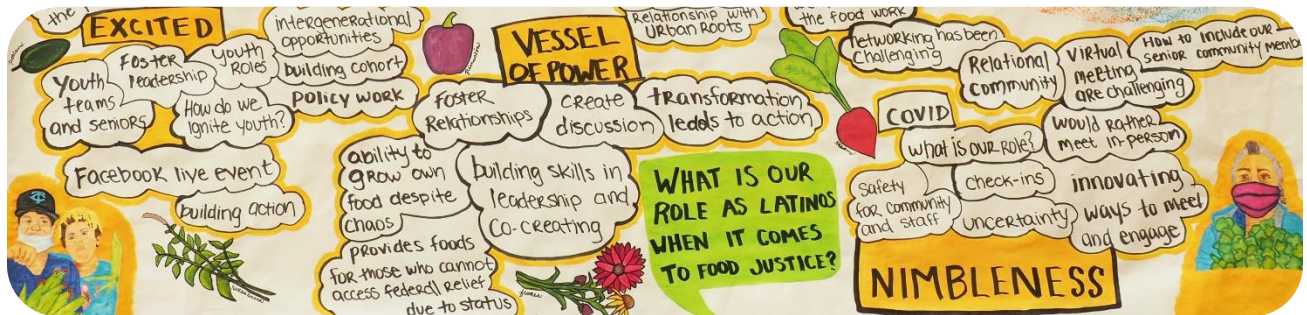 the
EXCITED
Foster
leadership
Youth
Roles
Youth
teams
and seniors
How do we
Ignite youth?
Facebook live event
building action
intergenerational
opportunities
building cohort
Policy work
VESSEL
OF POWER
Relationship with
Urban Roots
Foster
Relationships
create
discussion
transformation
leads to action
ability to
grow own
food despite
chaos
building skills in
leadership and
Co-creating
provides foods
for those who cannot
access federal relief
due to status
WHAT IS OUR
ROLE AS LATINOS
WHEN IT COMES
TO FOOD JUSTICE?
the food work
networking has been
challenging
Relational
Community
Virtual
meeting
are challenging
How to include our
senior community membe
COVID
what is our role?
would rather
meet in-person
Safety
for community
and staff
check-ins
uncertainty
innovating
ways to meet
and engage
NIMBLENESS